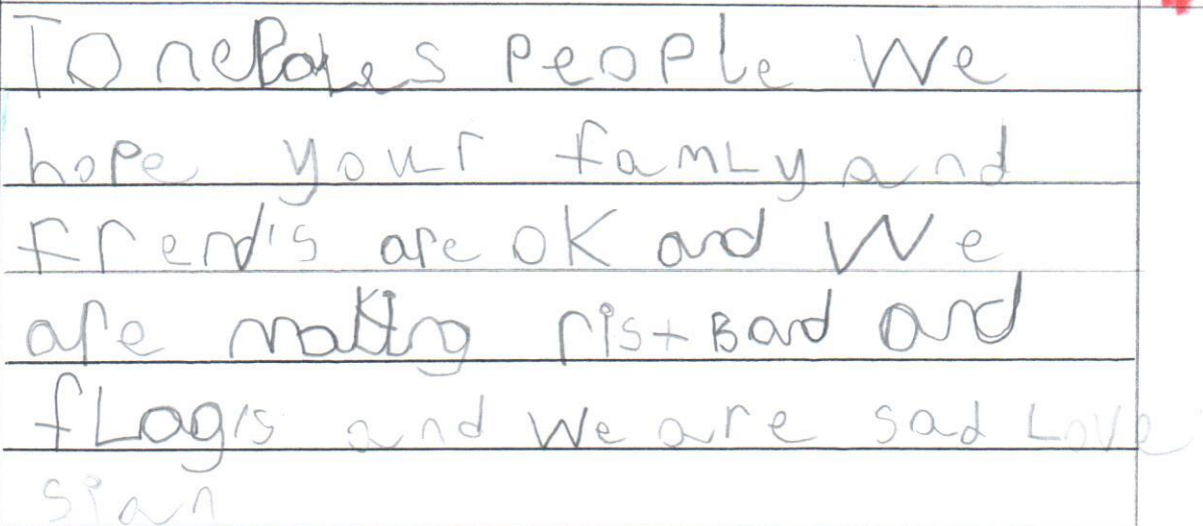 To nePales PeoPle We
hoPe your famLy and
frend's are OK and We
are making rist Band and
fLag's and We are sad Love
sian